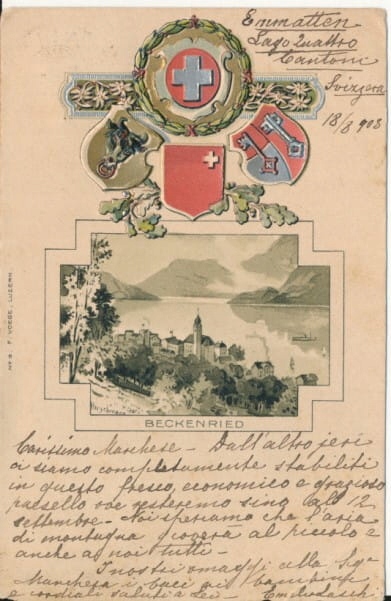 Emmatten
Lago Quattro
Cantoni
Svizzera
18/8 903
Nº 9. F. VOEGE, LUZERN.
BECKENRIED
Carissimo Marchese - Dall'altro jeri
ci siamo completamente stabiliti
in questo fresco, economico e grazioso
paesello ove resteremo sino al 12
settembre - Noi speriamo che l'aria
di montagna gioverà al piccolo e
anche a noi tutti -
I nostri omaggi alla Sigª
Marchesa i baci ai bambini
e cordiali saluti a Lei -